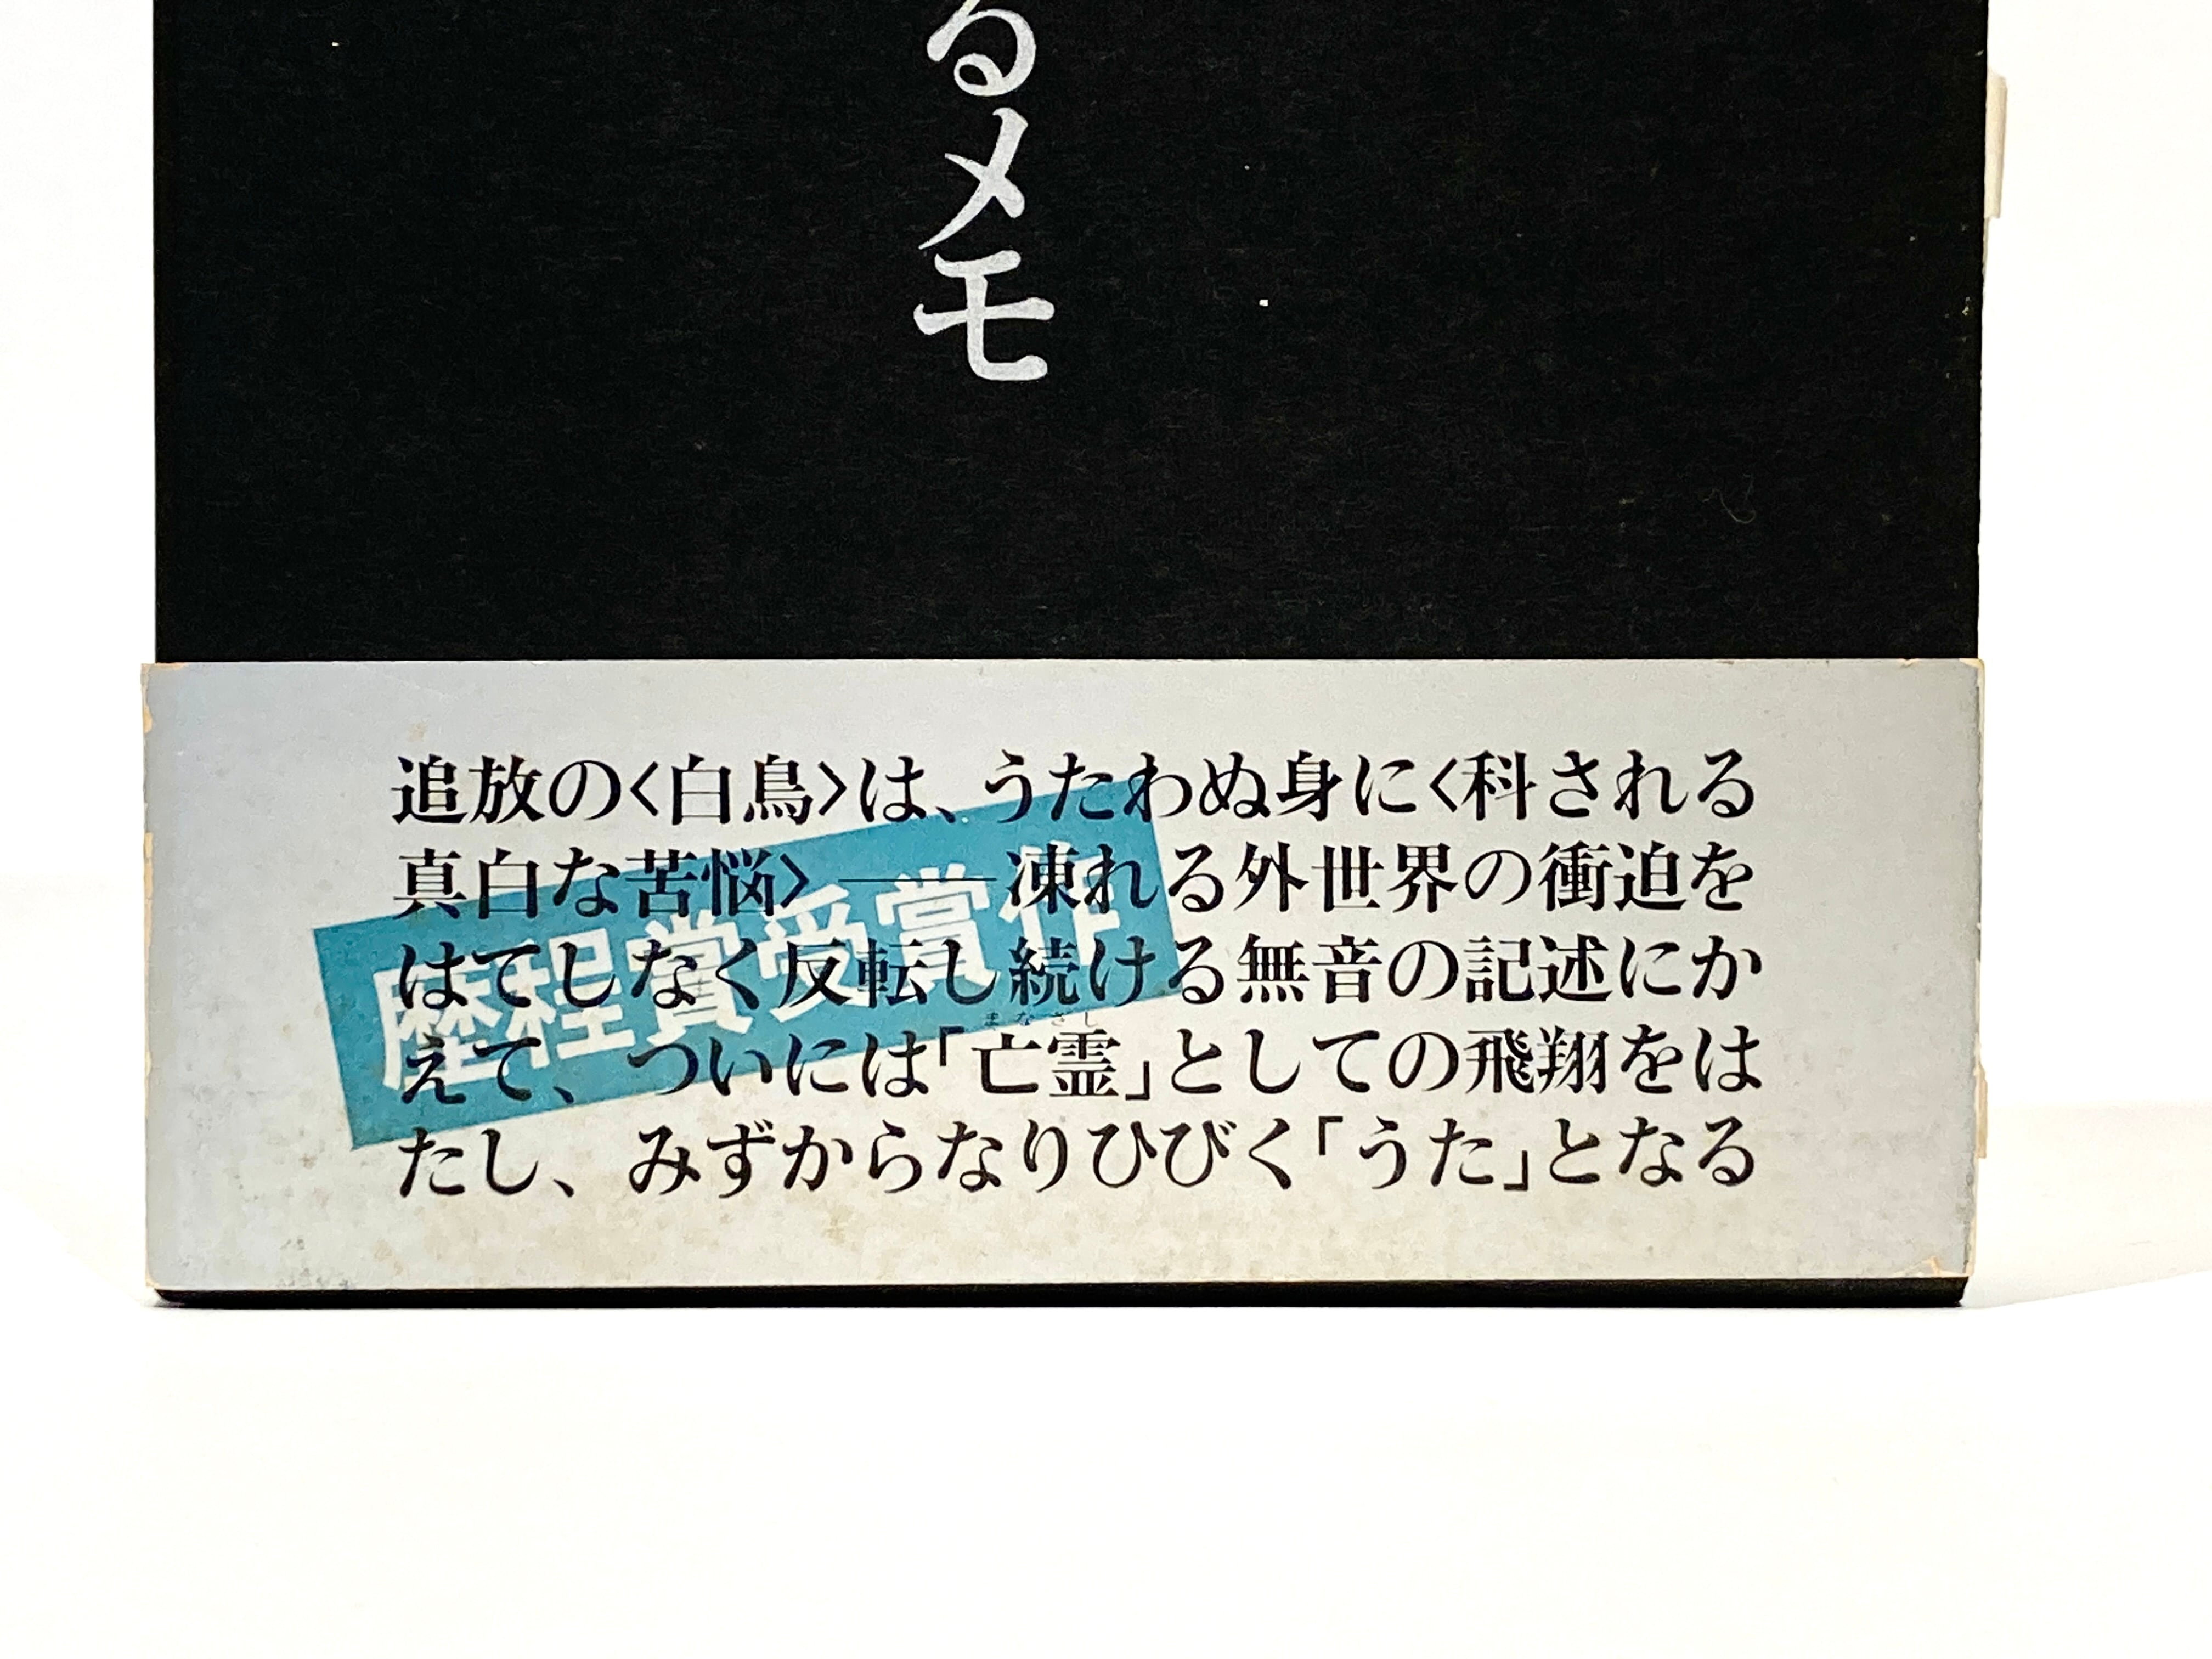 るメモ
追放の〈白鳥〉は、うたわぬ身に〈科される
真白な苦悩〉――凍れる外世界の衝迫を
はてしなく反転し続ける無音の記述にか
えて、ついには「亡霊」としての飛翔をは
まなざし
たし、みずからなりひびく「うた」となる
歴程賞受賞作